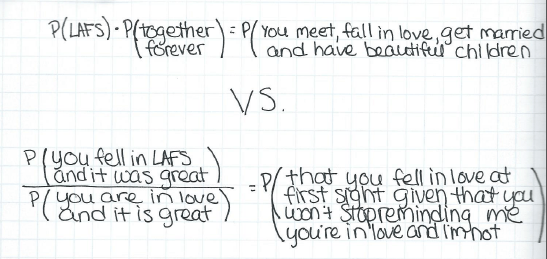 P(LAFS)·P(together forever) = P(you meet, fall in love, get married and have beautiful children
VS.
P(you fell in LAFS and it was great)
P(you are in love and it is great)
= P(that you fell in love at first sight given that you won't stop reminding me you're in love and I'm not)